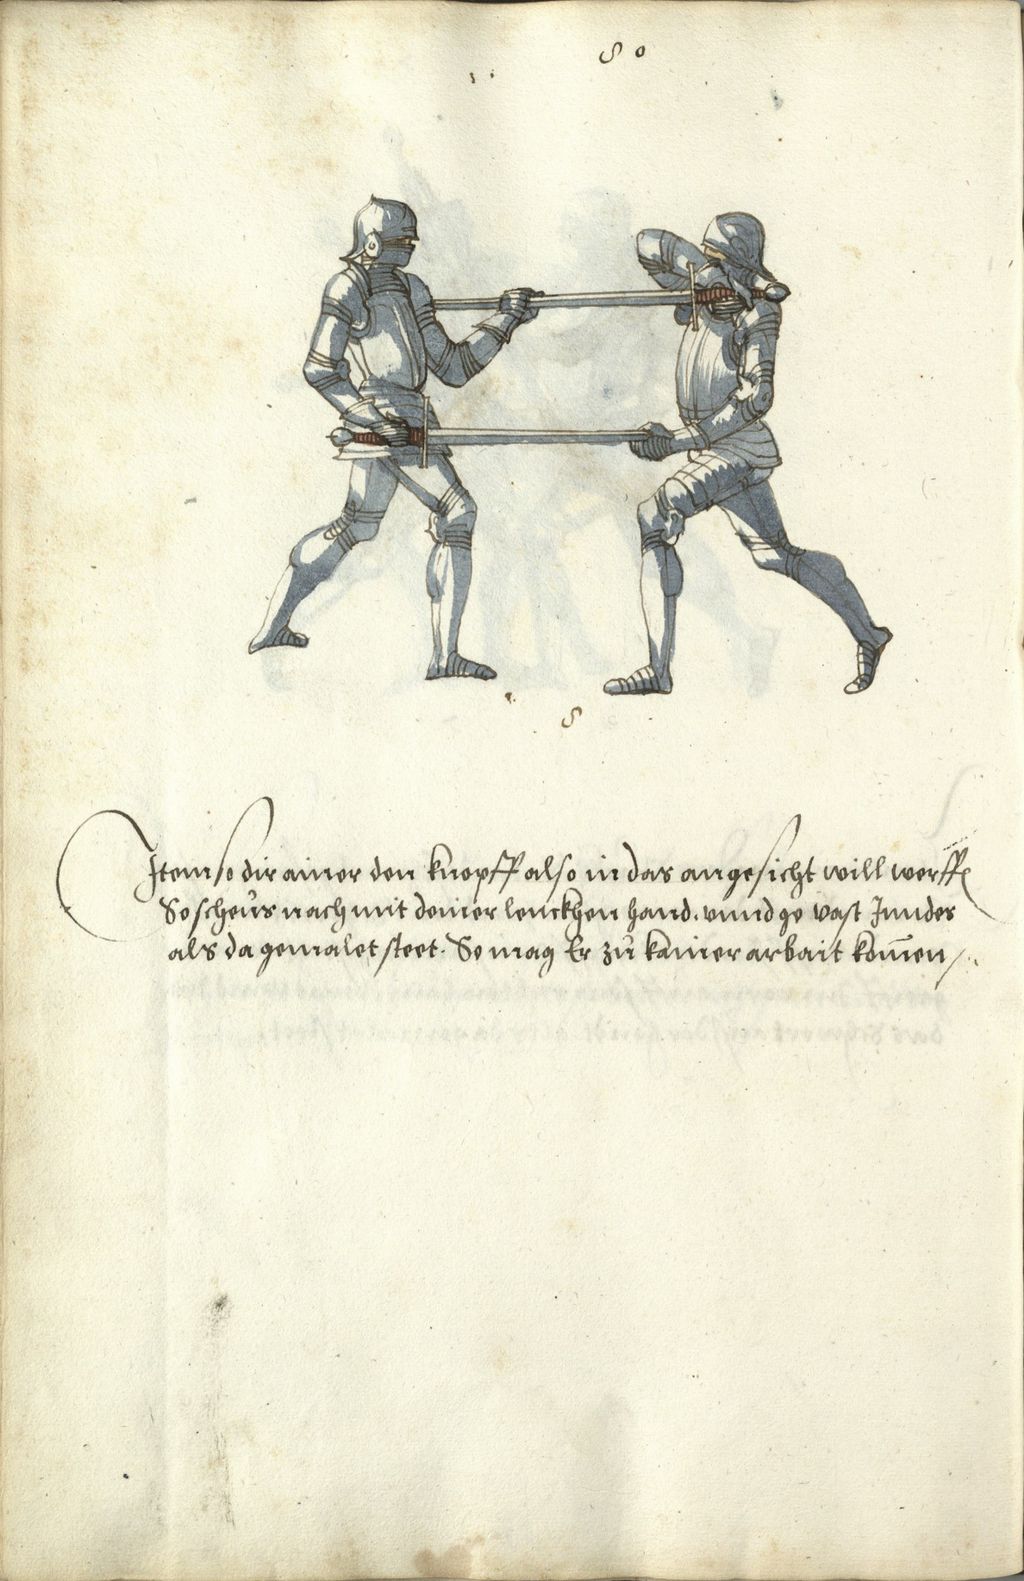 80
Item so dir ainer den knopff also in das angesicht will werffn
So scheüs nach mit deiner lenckhen hand. vnnd ge vast Jnn des
als da gemalet steet. So mag Er zü kainer arbait komen /.